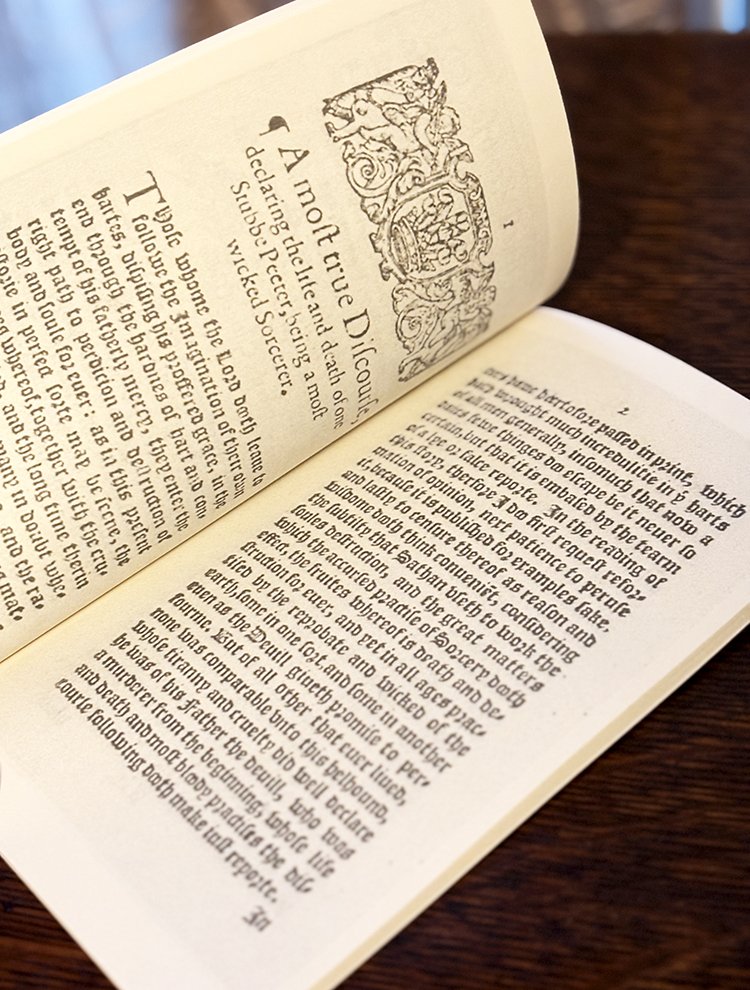 1
¶ A moſt true Diſcourſe,
declaring the life and death of one
Stubbe Peeter, being a moſt
wicked Sorcerer.
Thoſe whome the Lord dooth leaue to
followe the Imagination of their own
hartes, diſpiſing his proffered grace, in the
end through the hardnes of hart and con
tempt of his fatherly mercy, they enter the
right path to perdition and deſtruction of
body and ſoule for euer: as in this preſent
in perfect ſorte may be ſeene, the
whereof, together with the ru
and the long time therin
many in doubt whe
and the ra
mat
2
ters haue heertofore paſſed in print, which
hath wrought much incredulitie in ẏ harts
of all men generally, inſomuch that now a
daies fewe thinges doo eſcape be it neuer ſo
certain, but that it is embaſed by the tearm
of a lye or falce reporte. In the reading of
this ſtory, therfore I doo firſt requeſt refor
mation of opinion, next patience to peruſe
it, becauſe it is publiſhed for examples ſake,
and laſtly to cenſure thereof as reaſon and
wiſdome dooth think conuenient, conſidering
the ſubtilty that Sathan vſeth to work the
ſoules deſtruction, and the great matters
which the accurſed practiſe of Sorcery dooth
effect, the fruites whereof is death and de-
ſtruction for euer, and yet in all ages prac-
tiſed by the reprobate and wicked of the
earth, ſome in one ſort and ſome in another
euen as the Deuill giueth promiſe to per-
fourme. But of all other that euer liued,
none was comparable vnto this helhound,
whoſe tiranny and cruelty did well declare
he was of his Father the deuill, who was
a murderer from the beginning, whoſe life
and death and moſt bloody practiſes the diſ-
courſe following dooth make iuſt reporte.
In